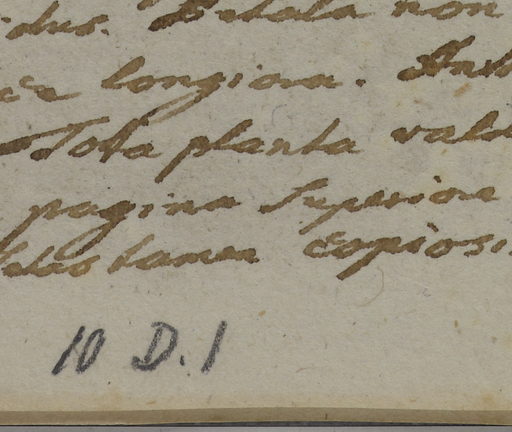 dus. Petala non
longiora. Anth
Tota planta vald
pagina superiore
tamen copiosi
10 D.1